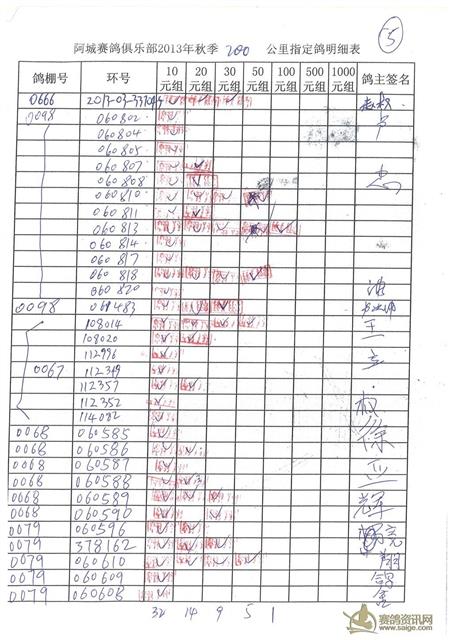 阿城赛鸽俱乐部2013年秋季 200 公里指定鸽明细表 ⑤
鸽棚号 环号 10元组 20元组 30元组 50元组 100元组 500元组 1000元组 鸽主签名
0666
0098 060802
060804
060805
060807 忠
060808
060810
060811
060813
060814
060817
060818
060820
0098 069483
108014 王
108020 立
112996
0067 112349
112357 权
112352
114082
0068 060585 徐
0068 060586
0068 060587
0068 060588
0068 060589 辉
0068 060590
0079 060596 亮
0079 378162 翔
0079 060610
0079 060609
0079 060608 金
32 14 9 5 1
赛鸽资讯网
www.saige.com